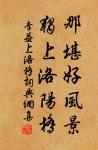 那堪好風景
獨上洛陽橋
李益上洛橋詩典網集